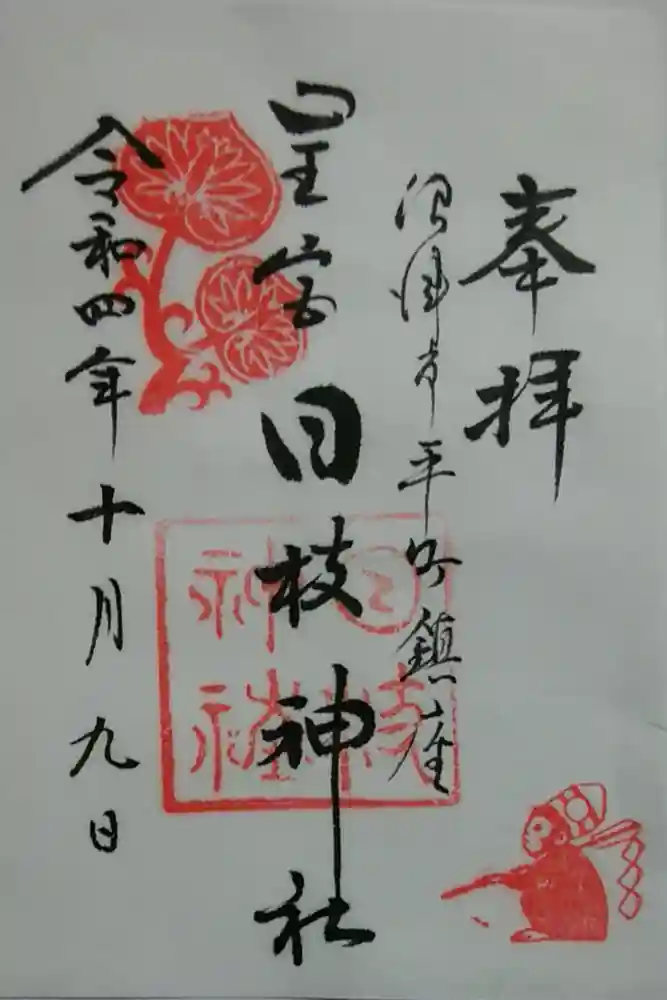 奉拝
沼津市平町鎮座
里宮 日枝神社
令和四年十月九日
日枝
神社